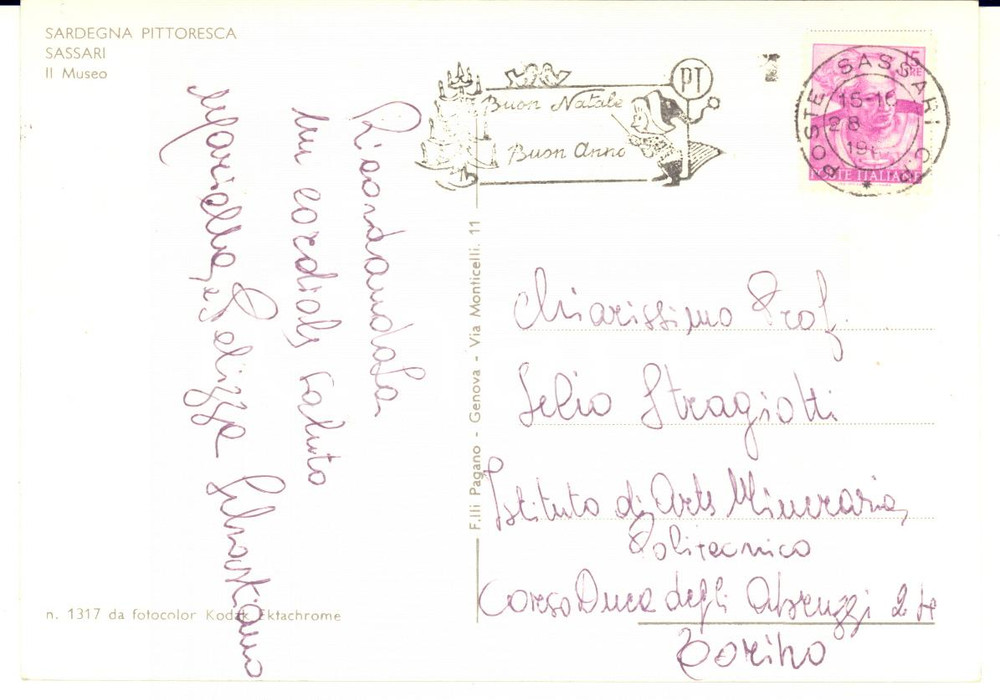 SARDEGNA PITTORESCA
SASSARI
Il Museo
Buon Natale
Buon Anno
PT
POSTE SASSARI C
15-16
28
196
15
LIRE
POSTE ITALIANE
Ricordandola
un cordiale saluto
Mariella, e Pelizza Sebastiano
F.lli Pagano - Genova - Via Monticelli, 11
Chiarissimo Prof.
Lelio Stragiotti
Istituto di Arte Mineraria,
Politecnico
Corso Duca degli Abruzzi 24
Torino
n. 1317 da fotocolor Kodak Ektachrome